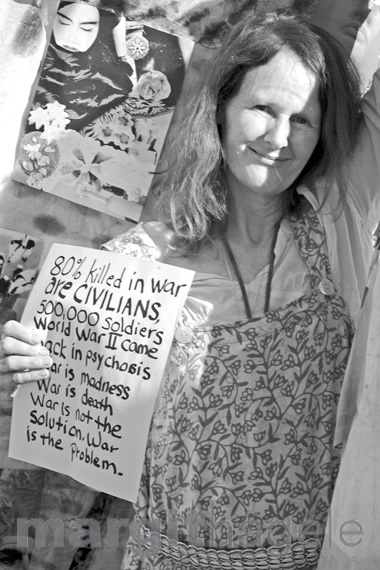 80% killed in war
are CIVILIANS
500,000 Soldiers
World War II came
back in psychosis
War is madness
War is death
War is not the
solution. War
is the problem.